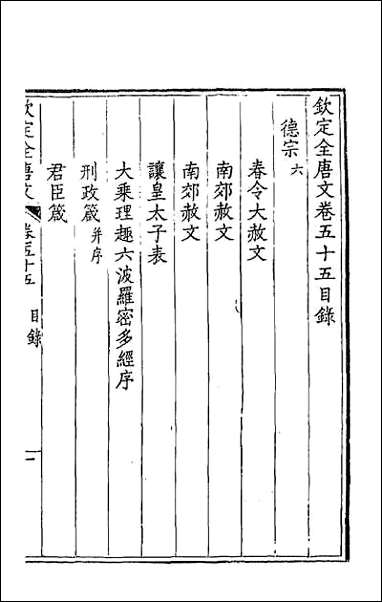 欽定全唐文卷五十五目錄
德宗 六
春令大赦文
南郊赦文
南郊赦文
讓皇太子表
大乘理趣六波羅密多經序
刑政箴 并序
君臣箴
欽定全唐文 卷五十五 目錄 一